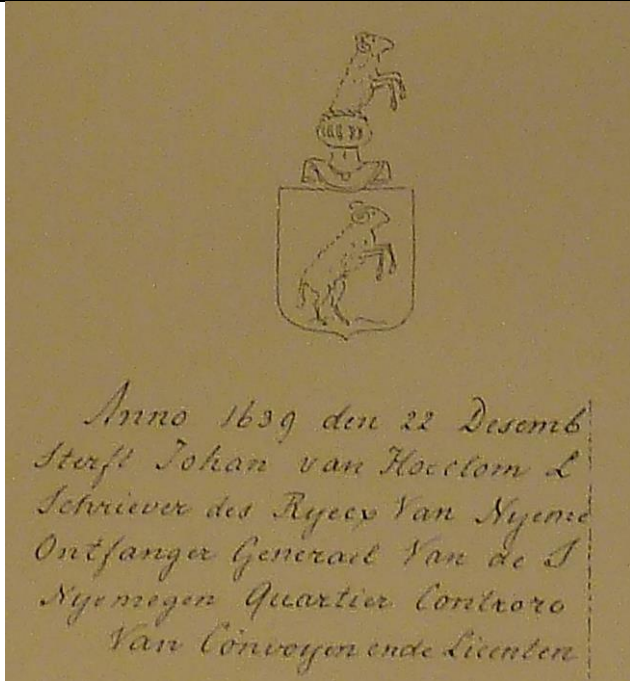 Anno 1639 den 22 Desemb
Sterft Johan van Hoeclom L
Schriever des Ryecx Van Nyeme
Ontfanger Generael Van de S
Nyemegen Quartier Controro
Van Convoyen ende Licenten